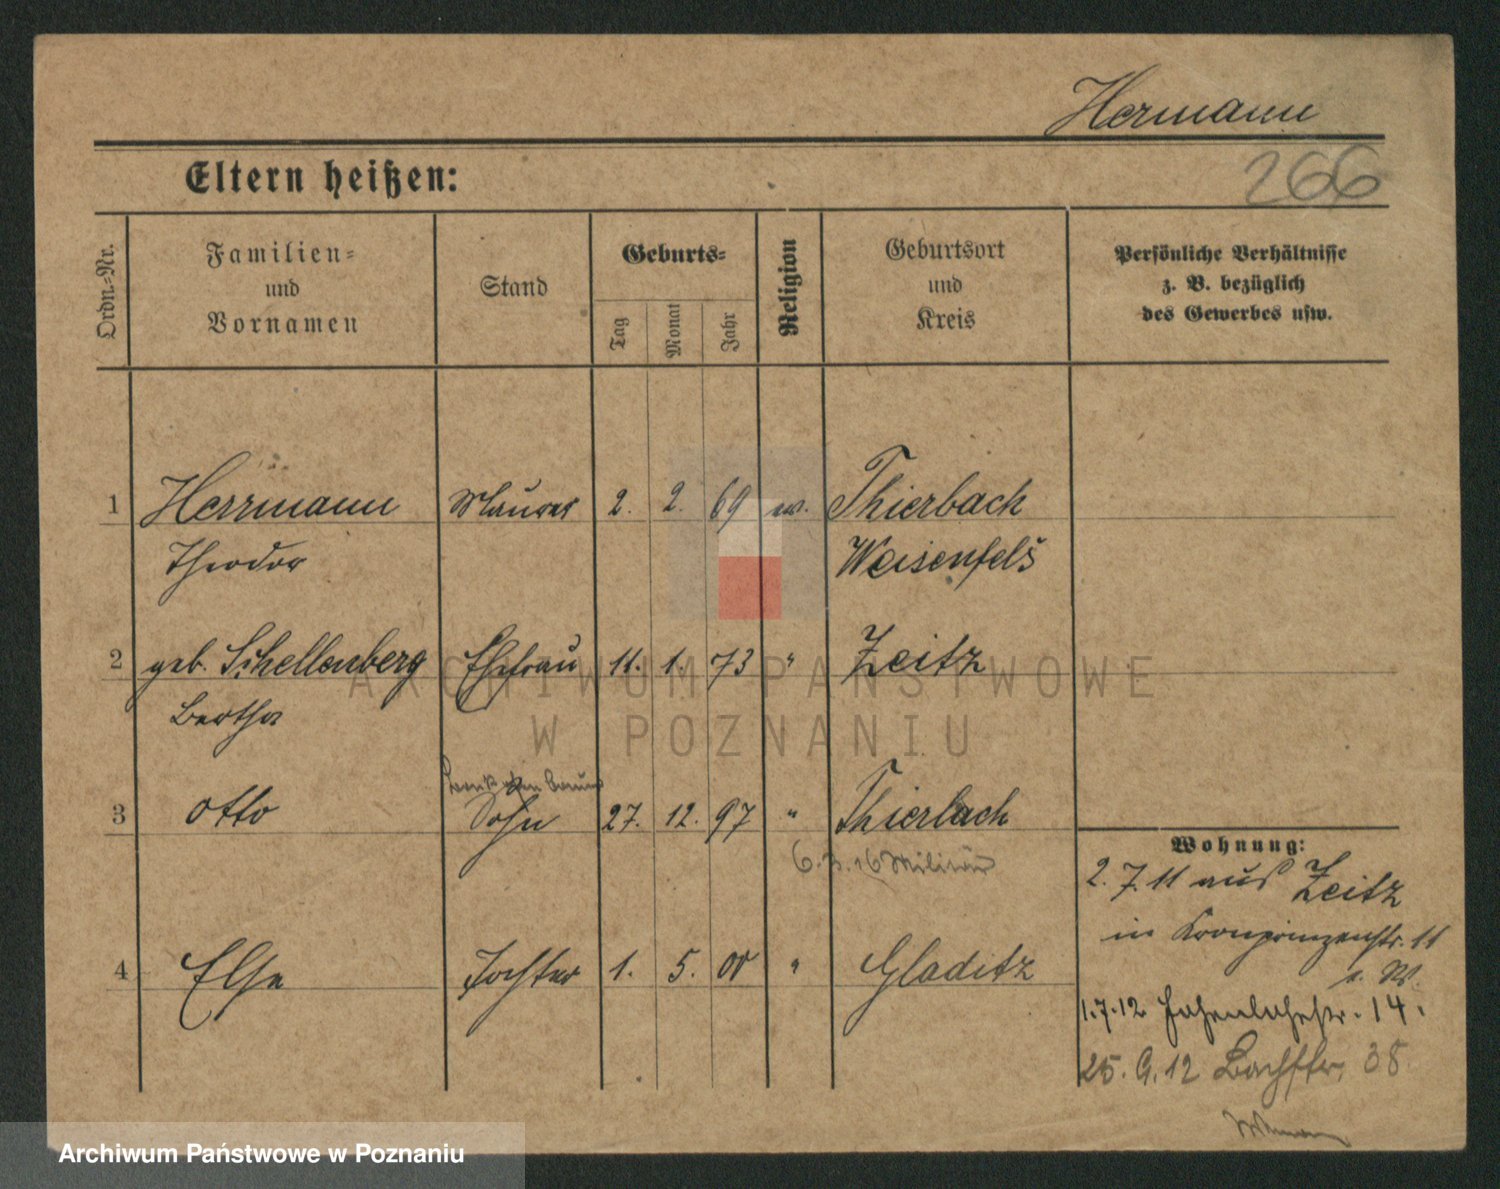 Hermann
266
Eltern heißen:
Ordn.-Nr.
Familien-
und
Vornamen
Stand
Geburts-
Tag
Monat
Jahr
Religion
Geburtsort
und
Kreis
Persönliche Verhältnisse
z. B. bezüglich
des Gewerbes usw.
1 Herrmann Maurer 2. 2. 69 ev. Thierbach
Theodor Weisenfels
2 geb. Schellenberg Ehefrau 11. 1. 73 " Zeitz
Bertha
3 Otto Sohn 27. 12. 97 " Thierbach
6. 3. 16 Militär
4 Else Tochter 1. 5. 00 " Gladitz
Wohnung:
2.7.11 aus Zeitz
in Kronprinzenstr. 11
1.7.12 14.
25.9.12 Bachstr. 38
ARCHIWUM PAŃSTWOWE
W POZNANIU
Archiwum Państwowe w Poznaniu